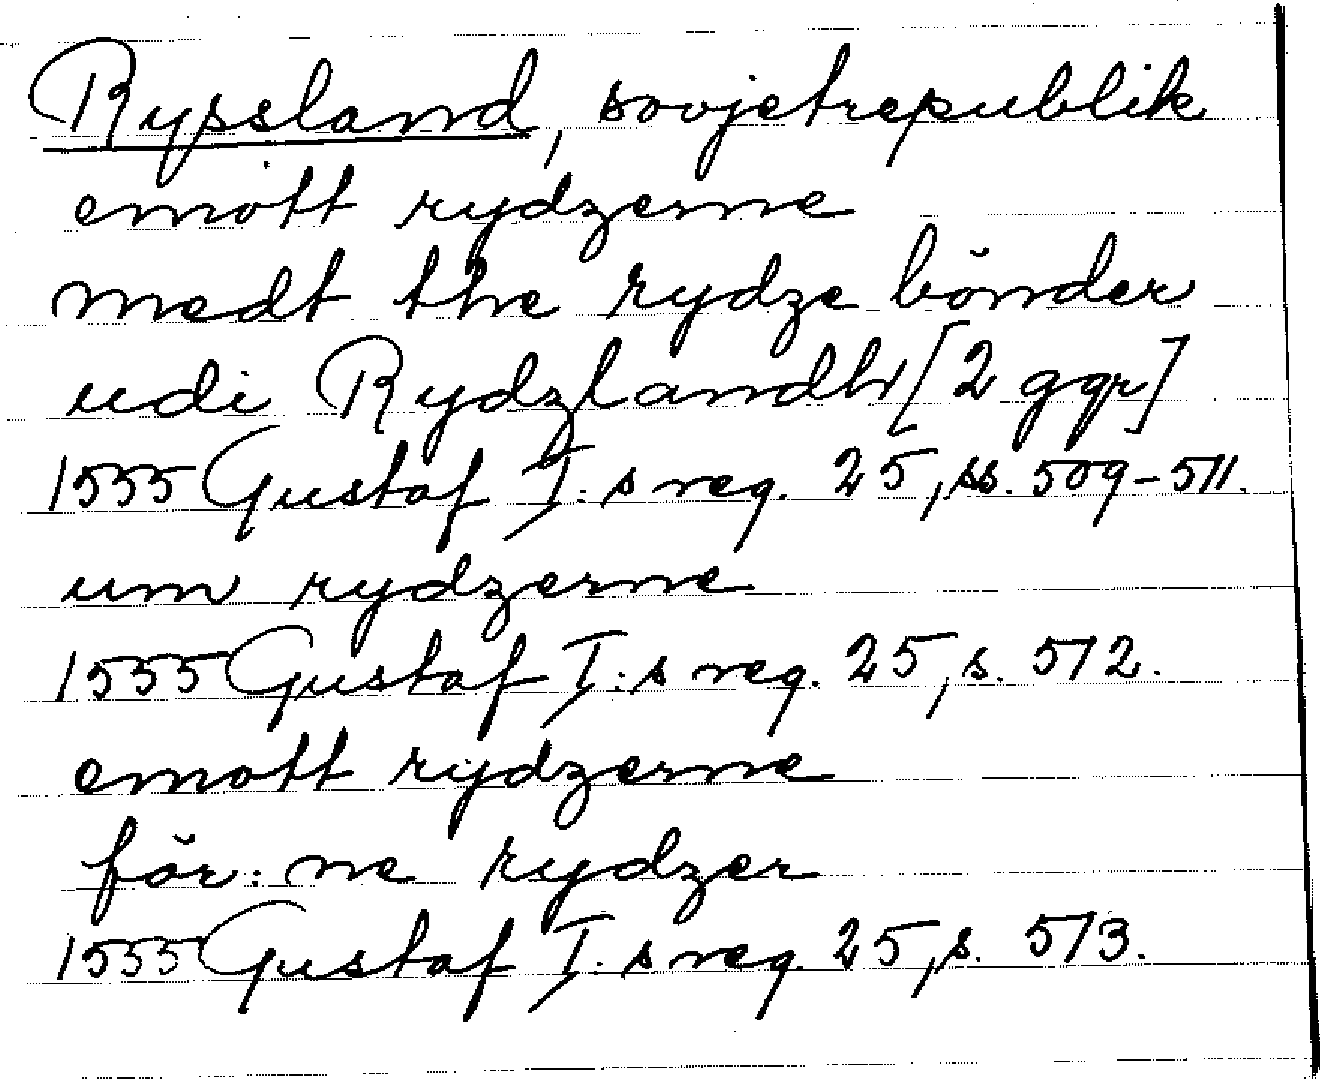 Ryssland, sovjetrepublik
emott rydzerne
medt the rydze bönder
udi Rydzlandh [2 ggr]
1555 Gustaf I:s reg. 25, ss. 509-511.
um rydzerne
1555 Gustaf I:s reg. 25, s. 512.
emott rydzerne
för:ne rydzer
1555 Gustaf I:s reg. 25, s. 513.